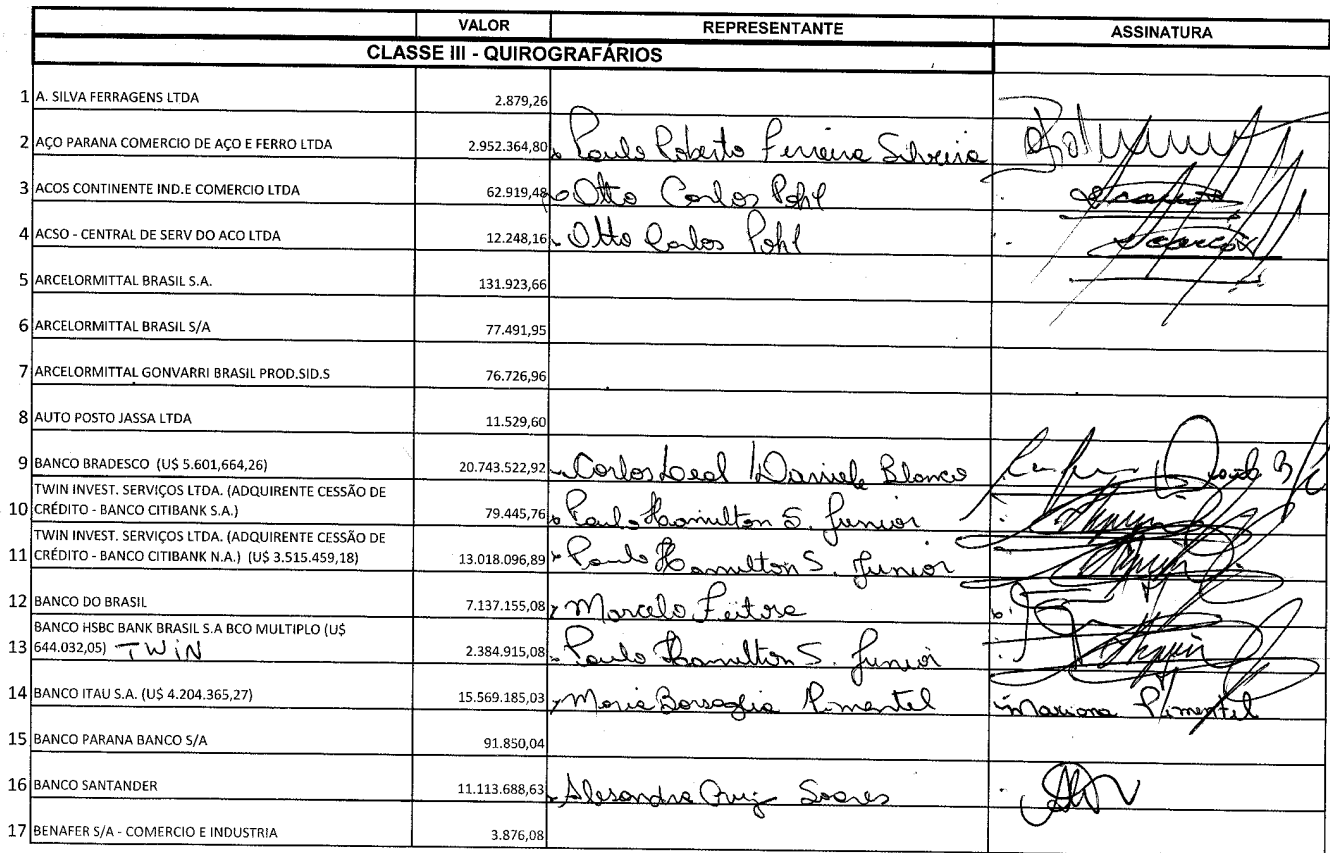 VALOR REPRESENTANTE ASSINATURA
CLASSE III - QUIROGRAFÁRIOS
1 A. SILVA FERRAGENS LTDA 2.879,26
2 AÇO PARANA COMERCIO DE AÇO E FERRO LTDA 2.952.364,80 Paulo Roberto Ferreira Silveira
3 ACOS CONTINENTE IND.E COMERCIO LTDA 62.919,48 Otto Carlos Pohl
4 ACSO - CENTRAL DE SERV DO ACO LTDA 12.248,16 Otto Carlos Pohl
5 ARCELORMITTAL BRASIL S.A. 131.923,66
6 ARCELORMITTAL BRASIL S/A 77.491,95
7 ARCELORMITTAL GONVARRI BRASIL PROD.SID.S 76.726,96
8 AUTO POSTO JASSA LTDA 11.529,60
9 BANCO BRADESCO (U$ 5.601,664,26) 20.743.522,92 Carlos Leal / Daniele Blanco
TWIN INVEST. SERVIÇOS LTDA. (ADQUIRENTE CESSÃO DE
10 CRÉDITO - BANCO CITIBANK S.A.) 79.445,76 Paulo Hamilton S. Junior
TWIN INVEST. SERVIÇOS LTDA. (ADQUIRENTE CESSÃO DE
11 CRÉDITO - BANCO CITIBANK N.A.) (U$ 3.515.459,18) 13.018.096,89 Paulo Hamilton S. Junior
12 BANCO DO BRASIL 7.137.155,08 Marcelo Feitosa
BANCO HSBC BANK BRASIL S.A BCO MULTIPLO (U$
13 644.032,05) TWIN 2.384.915,08 Paulo Hamilton S. Junior
14 BANCO ITAU S.A. (U$ 4.204.365,27) 15.569.185,03 Maria Borsaglia Pimentel Mariana Pimentel
15 BANCO PARANA BANCO S/A 91.850,04
16 BANCO SANTANDER 11.113.688,63 Alesandra Cruz Soares
17 BENAFER S/A - COMERCIO E INDUSTRIA 3.876,08